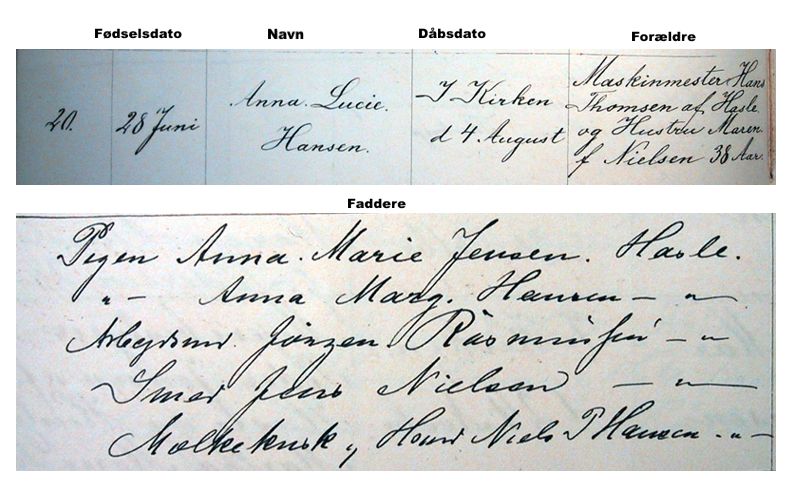 Fødselsdato Navn Dåbsdato Forældre
20. 28 Juni Anna Lucie Hansen. I Kirken d 4 August Maskinmester Hans
Thomsen af Hasle
og Hustru Maren
f Nielsen 38 Aar.
Faddere
Pigen Anna Marie Jensen. Hasle.
„ — Anna Marg. Hansen — „
Arbejdsmd. Jörgen Rasmussen — „
Smed Jens Nielsen — „
Mælkekusk Niels P Hansen - „ -